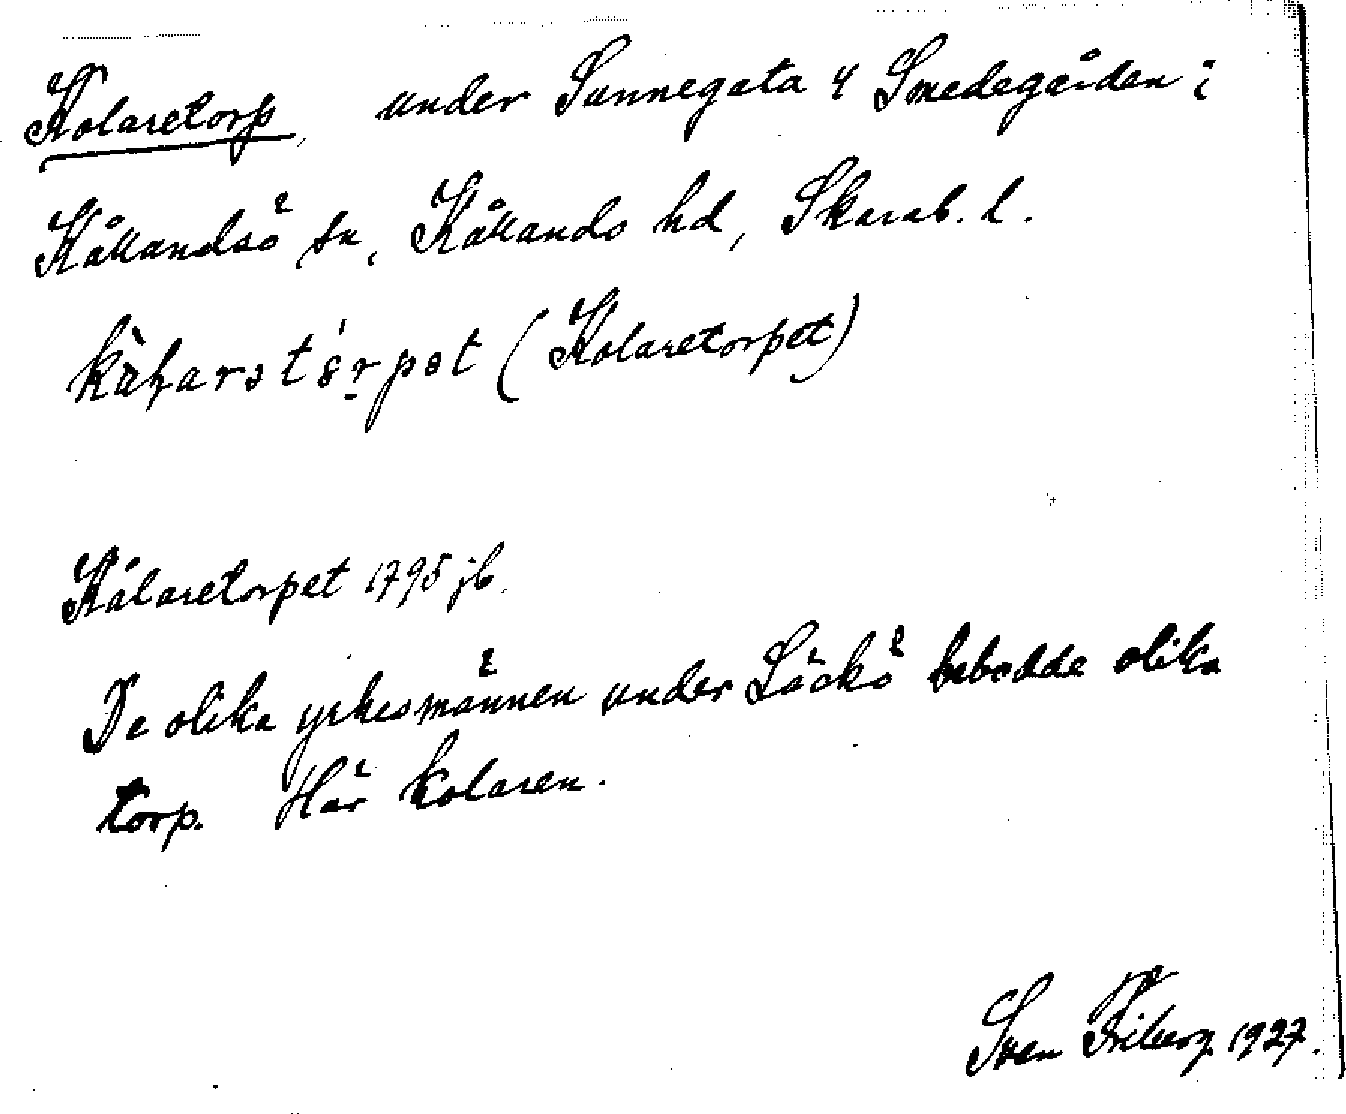 Kolaretorp, under Sunnegata & Smedegården i
Kållandsö sn, Kållands hd, Skarab. l.
(Kolaretorpet)
Kålaretorpet 1795 jb.
De olika yrkesmännen under Läckö bebodde olika
torp. Här kolaren.
Sven Friberg 1927.